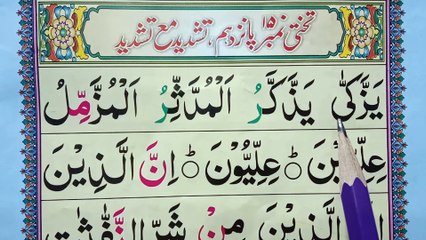 تختی نمبر ۱۵ پانزدہم، تشدید مع تشدید
یَزَّکّٰی یَذَّکَّرُ الْمُدَّثِّرُ الْمُزَّمِّلُ
عِلِّیِّیْنَ ○ عِلِّیُّوْنَ ○ اِنَّ الَّذِیْنَ
الَّذِیْنَ مِنْ شَرِّ النَّفّٰثٰتِ